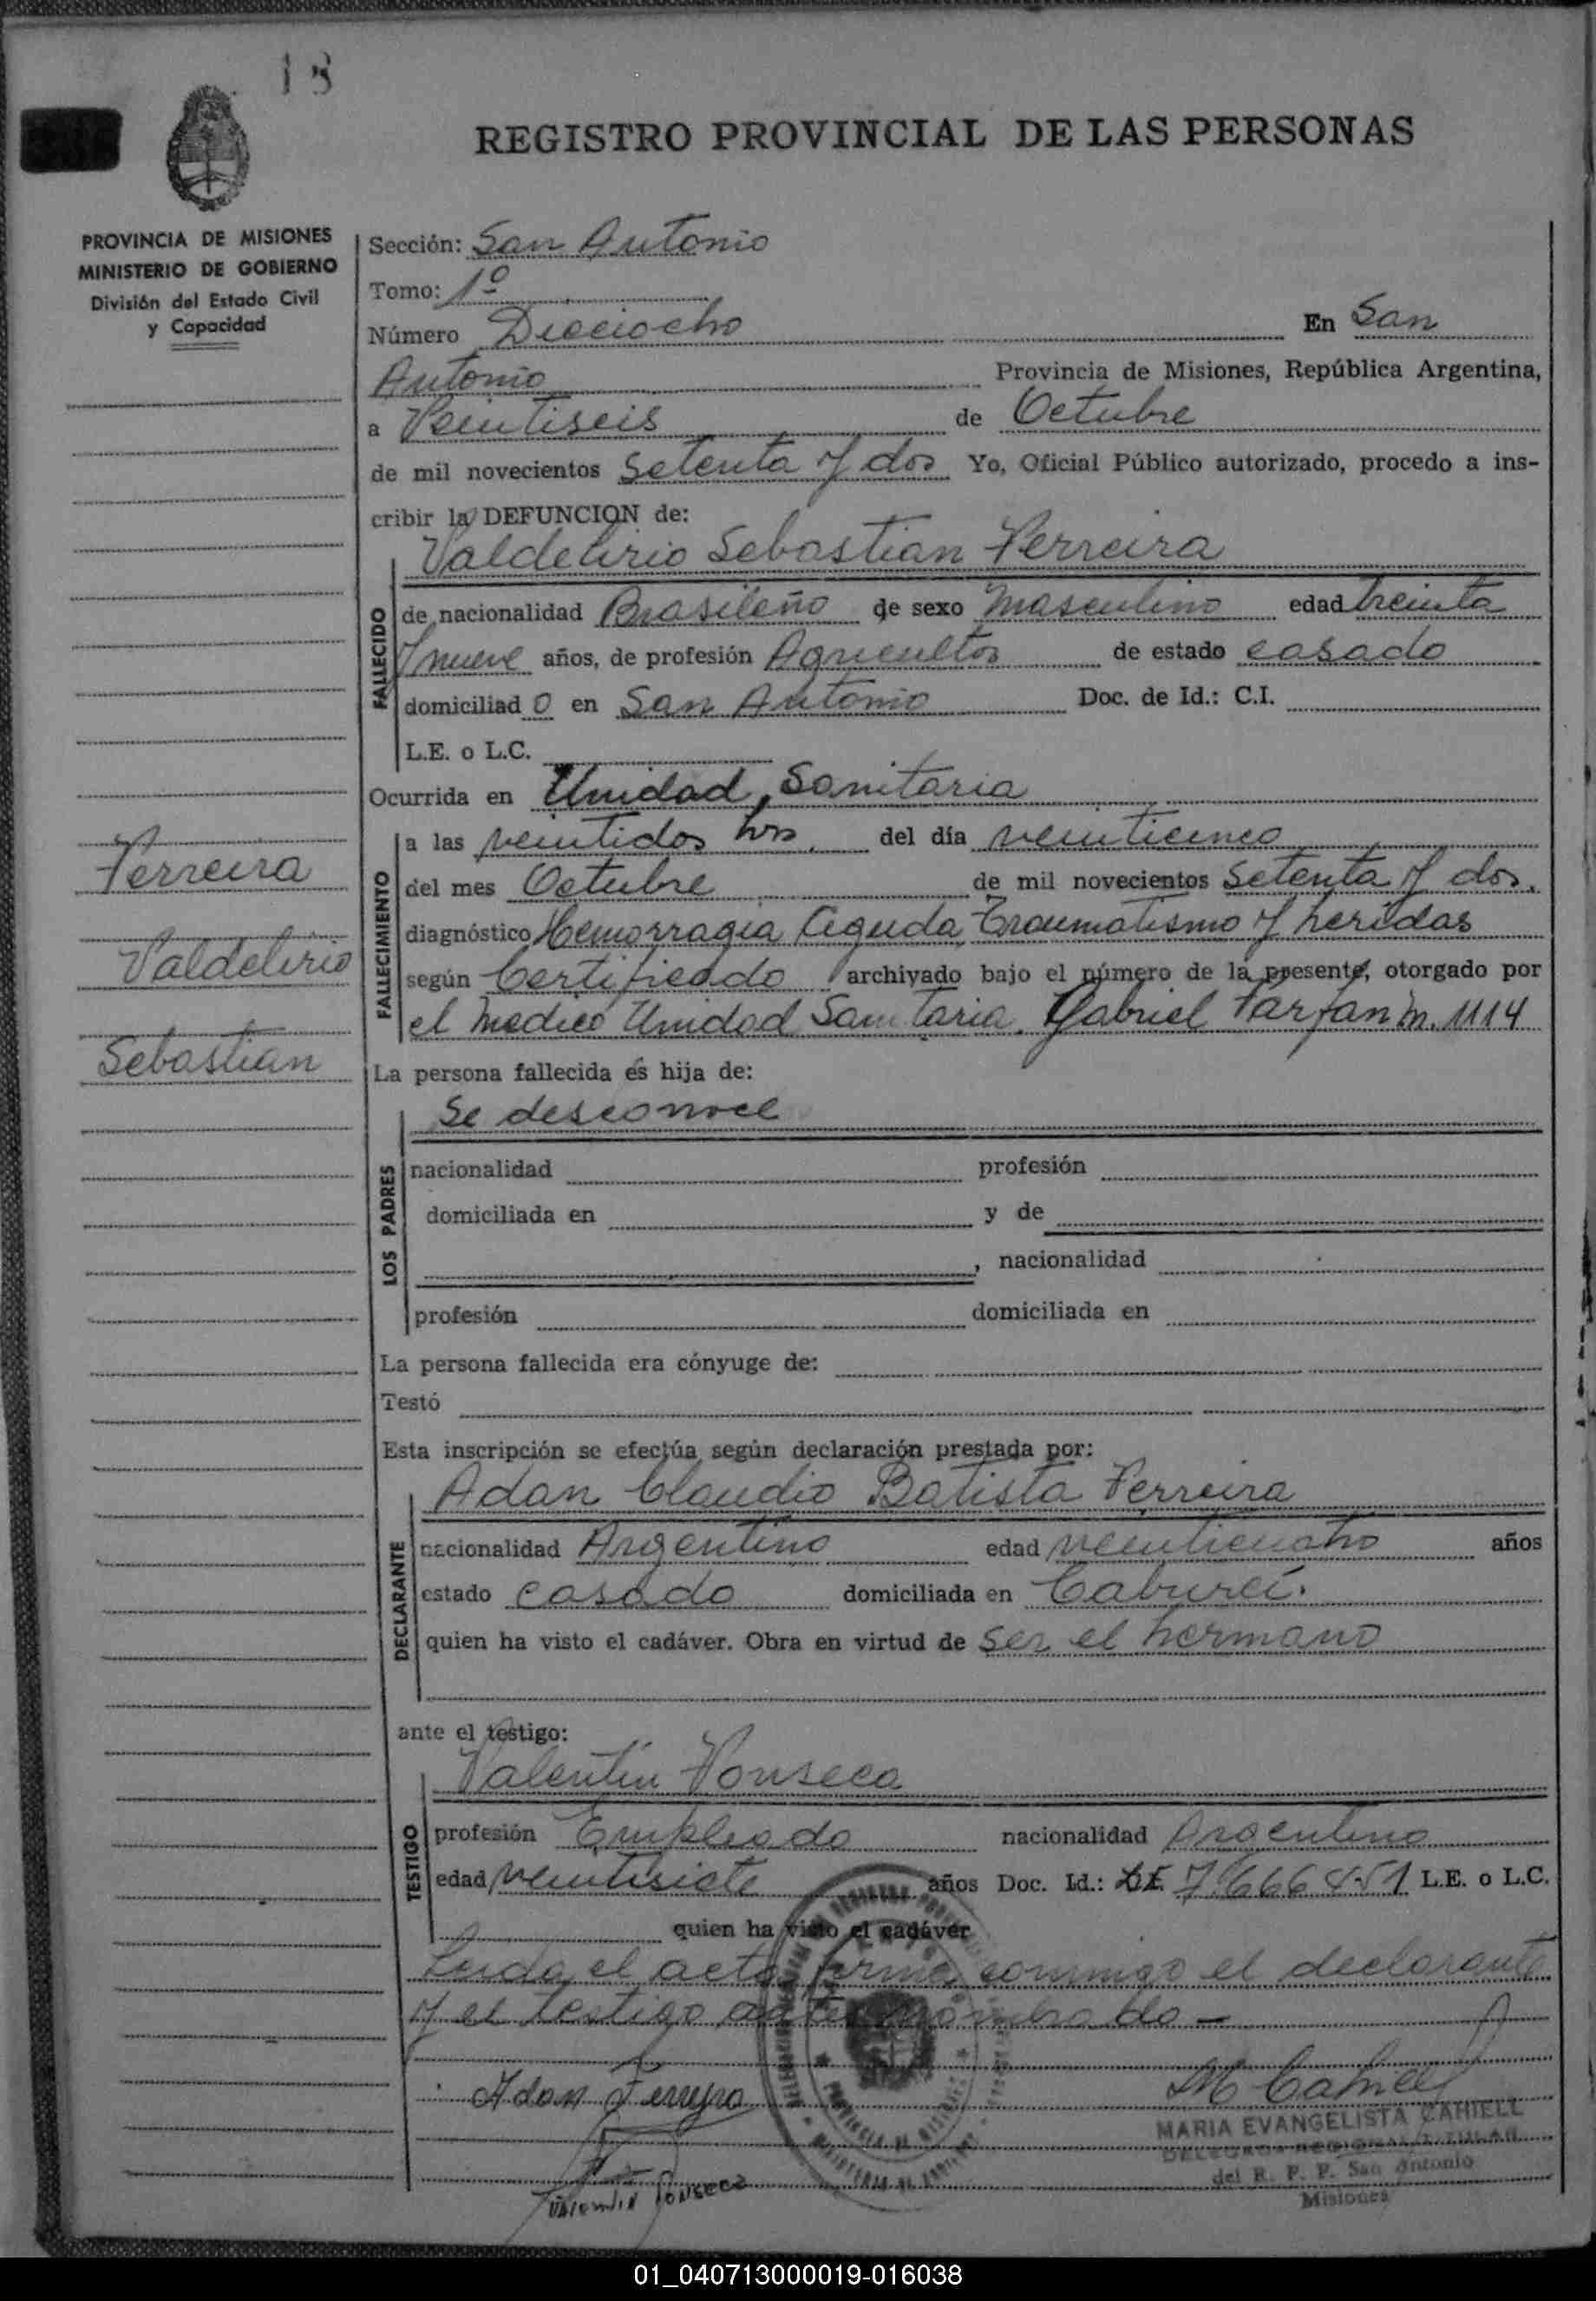 18
REGISTRO PROVINCIAL DE LAS PERSONAS
PROVINCIA DE MISIONES
MINISTERIO DE GOBIERNO
División del Estado Civil
y Capacidad
Sección: San Antonio
Tomo: 1º
Número Dieciocho En San
Antonio Provincia de Misiones, República Argentina,
a Veintiseis de Octubre
de mil novecientos Setenta y dos Yo, Oficial Público autorizado, procedo a ins-
cribir la DEFUNCION de:
Valdelirio Sebastian Ferreira
FALLECIDO
de nacionalidad Brasileño de sexo Masculino edad treinta
y nueve años, de profesión Agricultor de estado casado
domiciliad o en San Antonio Doc. de Id.: C.I.
L.E. o L.C.
Ocurrida en Unidad Sanitaria
FALLECIMIENTO
a las veintidos hrs. del día veinticinco
del mes Octubre de mil novecientos Setenta y dos.
diagnóstico Hemorragia Aguda, Traumatismo y heridas
según Certificado archivado bajo el número de la presente, otorgado por
el medico Unidad Sanitaria. Gabriel Farfan m. 1114
Ferreira
Valdelirio
Sebastian
La persona fallecida es hija de:
Se desconoce
LOS PADRES
nacionalidad profesión
domiciliada en y de
, nacionalidad
profesión domiciliada en
La persona fallecida era cónyuge de:
Testó
Esta inscripción se efectúa según declaración prestada por:
Adan Claudio Batista Ferreira
DECLARANTE
nacionalidad Argentino edad veinticuatro años
estado casado domiciliada en Caburei.
quien ha visto el cadáver. Obra en virtud de ser el hermano
ante el testigo:
Valentin Fonseca
TESTIGO
profesión Empleado nacionalidad Argentino
edad veintisiete años Doc. Id.: L.E. 7.666451 L.E. o L.C.
quien ha visto el cadáver
Leida el acta, firma conmigo el declarante
y el testigo antes nombrado -
Adan Ferreyra
M Cahiell
MARIA EVANGELISTA CAHIELL
DELEGADA REGIONAL TITULAR
del R. P. P. San Antonio
Misiones
Valentin Fonseca
01_040713000019-016038